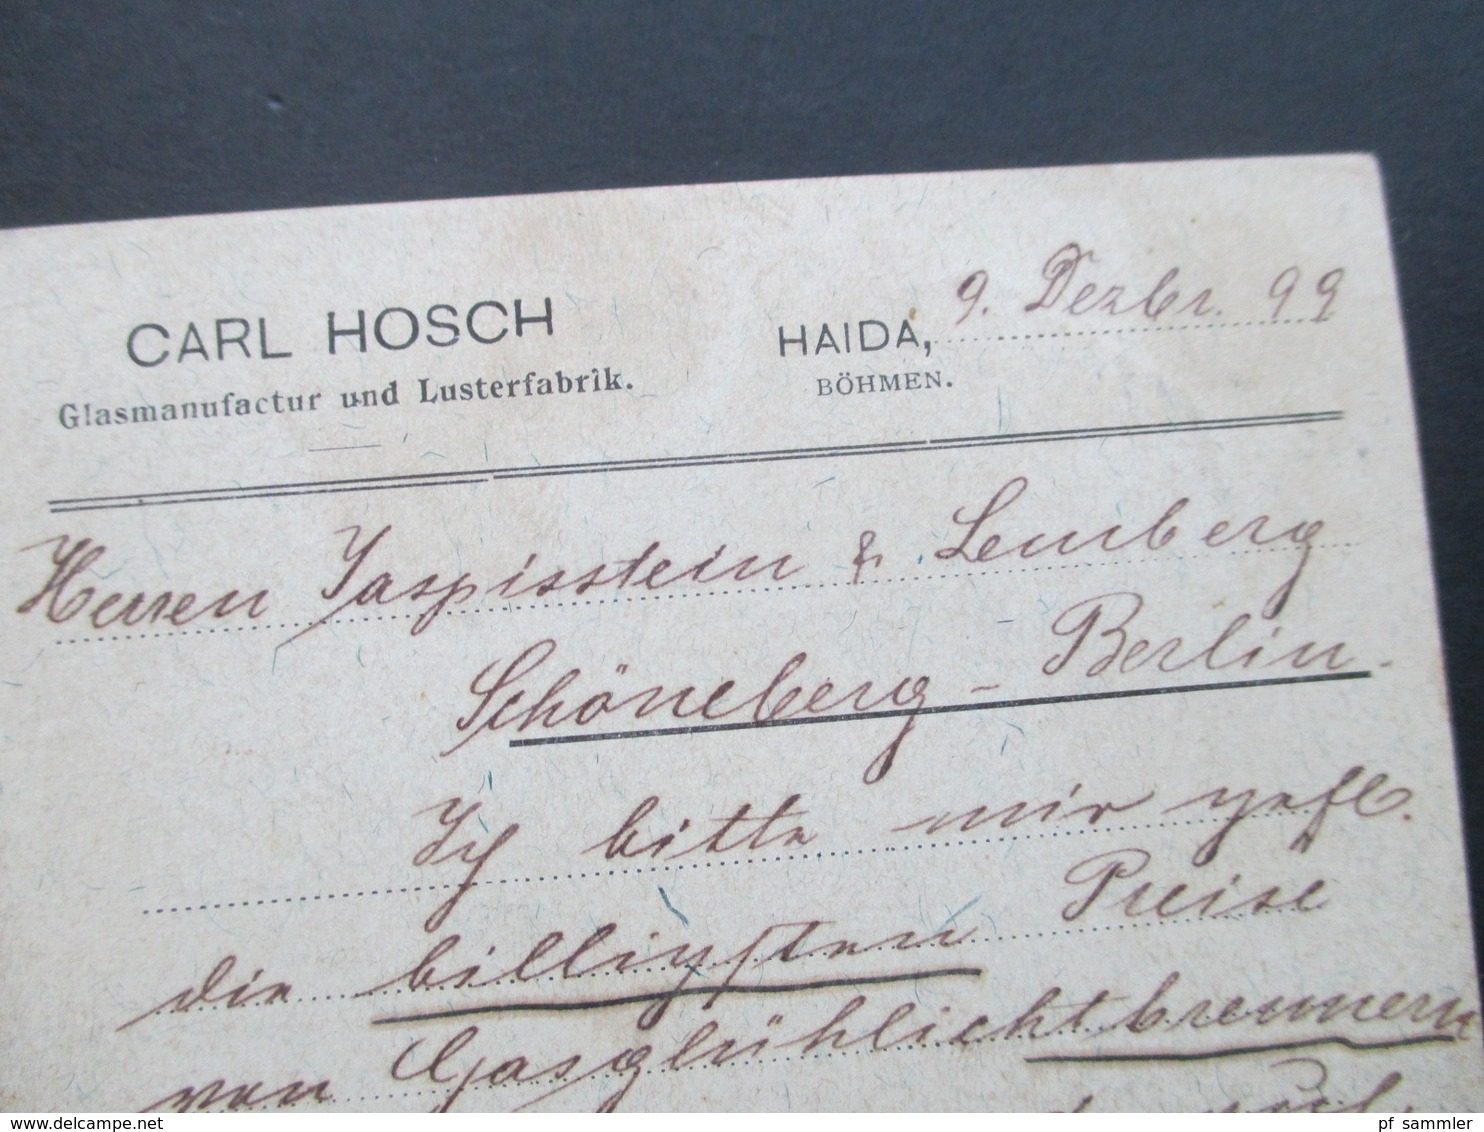 CARL HOSCH
Glasmanufactur und Lusterfabrik.
HAIDA, 9. Dezbr. 99
BÖHMEN.
Herren Jaspisstein & Lemberg
Schöneberg - Berlin.
Ich bitte mir gefl.
die billigsten Preise
von Gasglühlichtbrennern
www.delcampe.net
pf_sammler